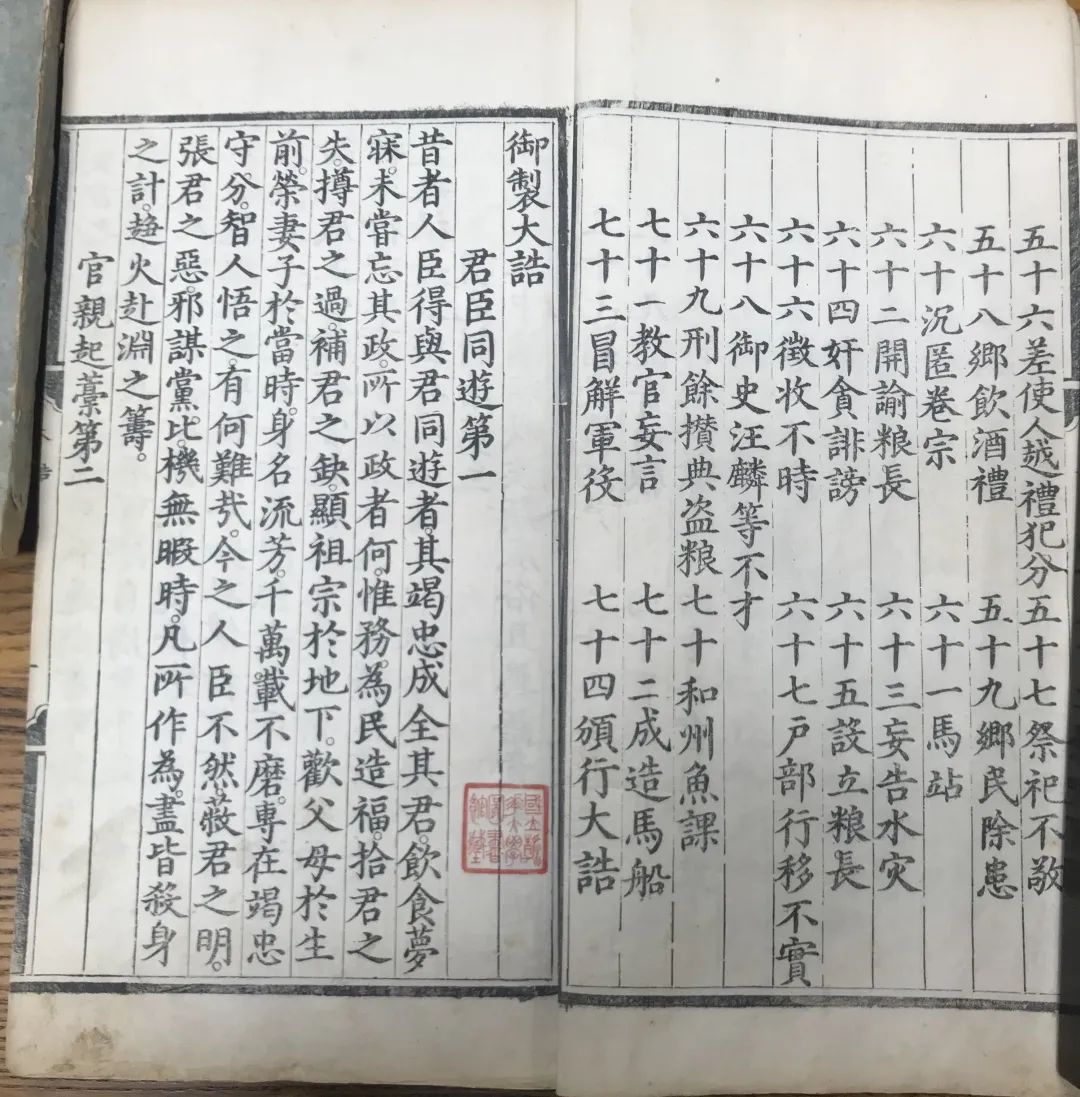 五十六差使人越禮犯分五十七祭祀不敬
五十八鄉飲酒禮　五十九鄉民除患
六十沉匿卷宗　六十一馬站
六十二開諭粮長　六十三妄告水灾
六十四奸貪誹謗　六十五設立粮長
六十六徵收不時　六十七戶部行移不實
六十八御史汪麟等不才
六十九刑餘攢典盗粮七十和州魚課
七十一教官妄言　七十二成造馬船
七十三冒解軍役　七十四頒行大誥
御製大誥
君臣同遊第一
昔者人臣得與君同遊者。其竭忠成全其君。飲食夢
寐。未嘗忘其政。所以政者何。惟務。為民造福。拾君之
失。撙君之過。補君之缺。顯祖宗於地下。歡父母於生
前。榮妻子於當時。身名流芳。千萬載不磨。專在竭忠
守分。智人悟之。有何難㢤。今之人臣不然。蔽君之明。
張君之惡。邪謀黨比。機無暇時。凡所作為。盡皆殺身
之計。趍火赴淵之籌。
官親起藁第二